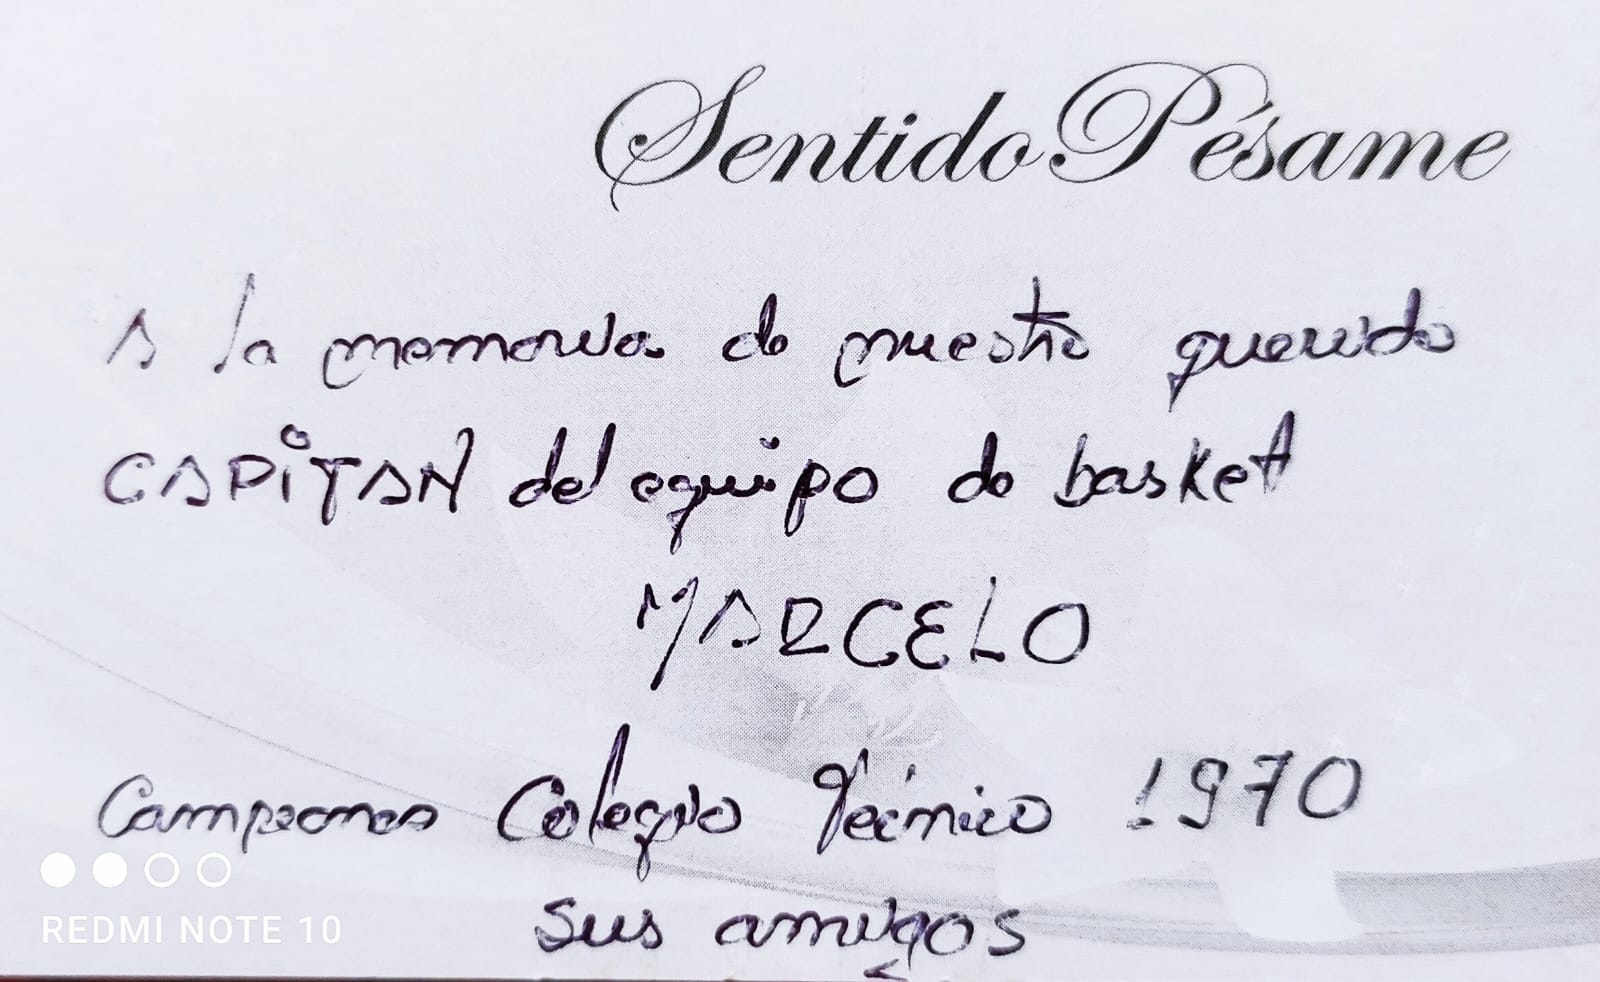 Sentido Pésame
A la memoria de nuestro querido
CAPiTAN del equipo de basket
MARCELO
Campeones Colegio Técnico 1970
sus amigos
REDMI NOTE 10